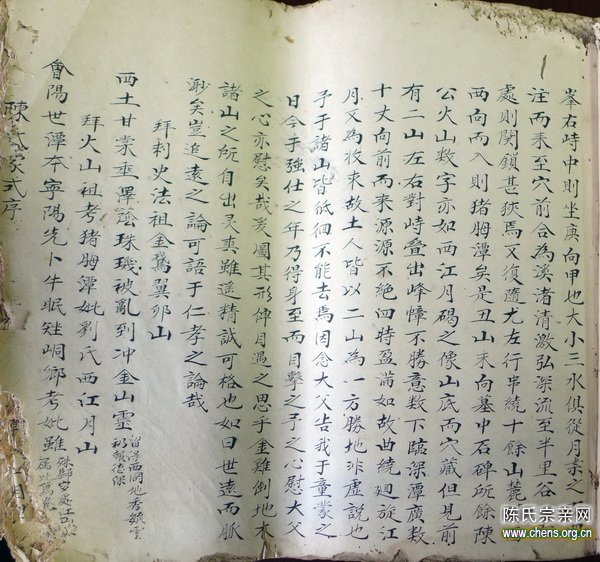 峯右峙中則坐庚向甲也大小三水俱從月
注而来至穴前合為溪渚清激弘深流至半里谷
處則関鎖甚狹焉又復隨尤左行串繞十餘山麓
西向而入則猪胸潭矣是丑山未向墓中石碑所餘陳
公火山数字亦如西江月碣之像山底而穴藏但見前
有二山左右對峙叠出峰嶂不勝意数下臨深潭廣数
十丈向前而来源源不絶回特盈滿如故曲繞廻旋江
月又為收束故土人皆以二山為一方勝地非虚説也
予于諸山皆低徊不能去焉因念大父告我于童蒙之
日今予強仕之年乃得身至而目擊之予之心慰大父
之心亦慰矣哉爰圖其形俾月遇之思乎金雞倒地木
諸山之所自出灵爽雖遥精誠可格也如曰世遠而脈
渺矣豈追遠之論可語于仁孝之論哉
拜刺史法祖金鵞翼卯山
西土甘棠垂澤蔭珠璣被亂到冲金山靈
留得西同地秀毓
礽報德深
拜火山祖考猪胸潭妣劉氏西江月山
會陽世潭本寧陽先卜牛眠䂳峒鄉考妣雖
陳
式序
陈氏宗亲网
www.chens.org.cn